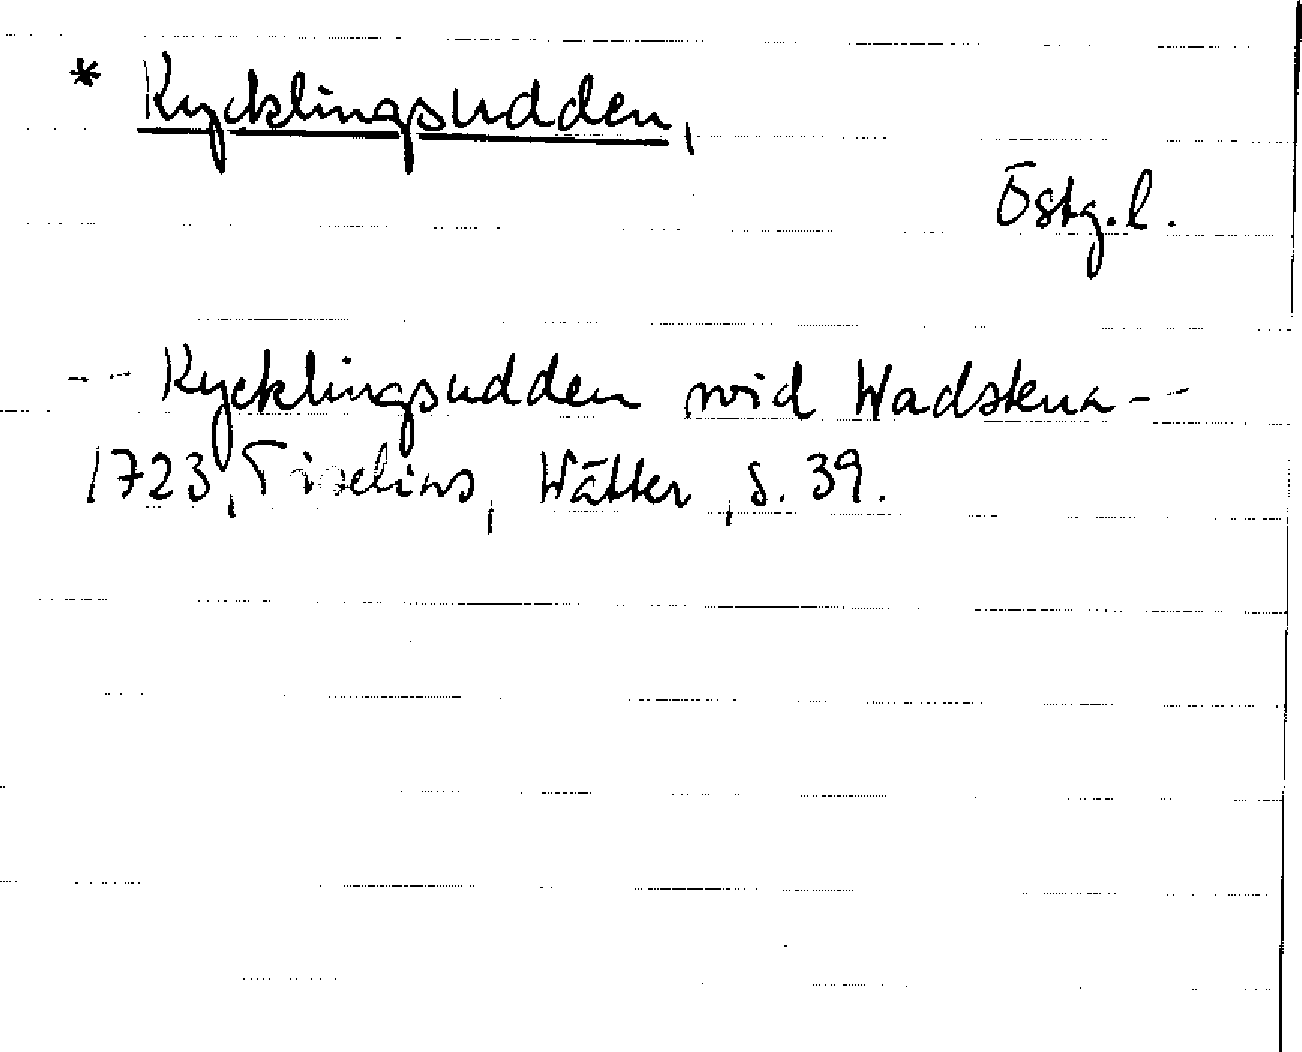 * Kycklingsudden,
Östg.l.
-- Kycklingsudden wid Wadskena --
1723, Tiselius, Wätter, s. 39.